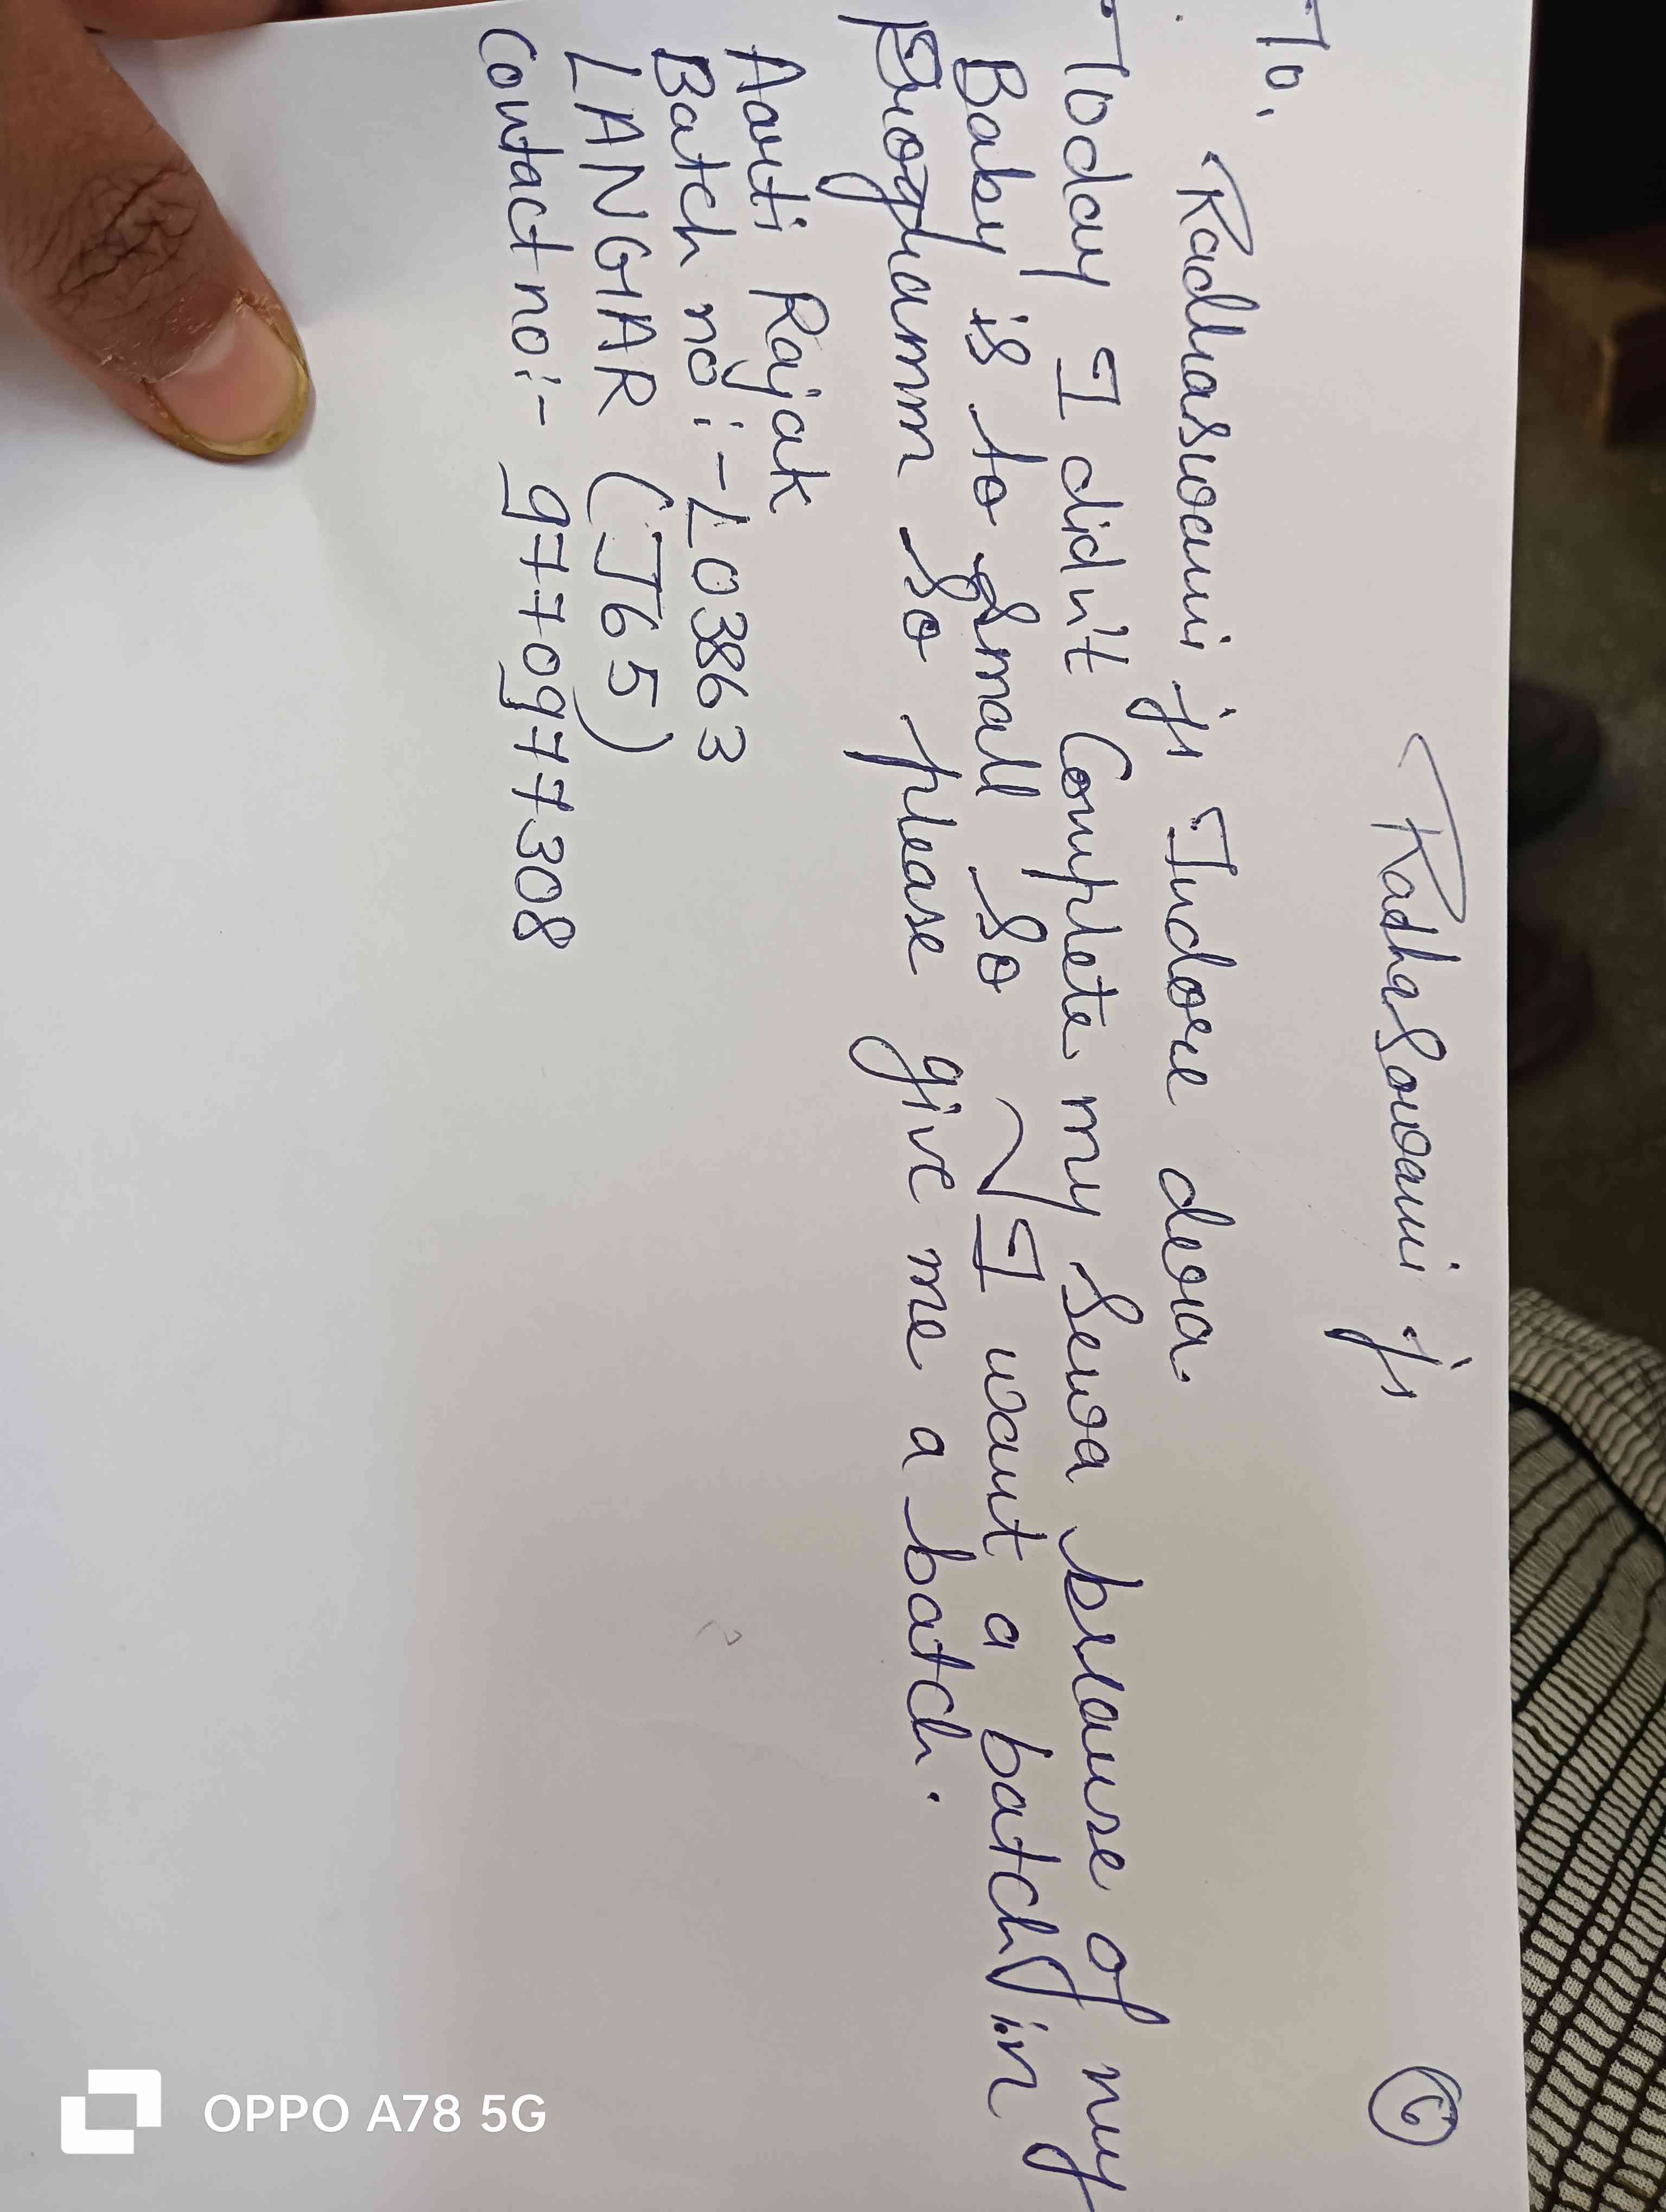 6
Radhasowami ji
To,
Radhasowami ji Indore dera.
Today I didn't Complete my Sewa because of my
Baby is to small so I want a batch in
programm so please give me a batch.
Aarti Rajak
Batch no:- L03863
LANGAR (J65)
Contact no:- 9770977308
OPPO A78 5G